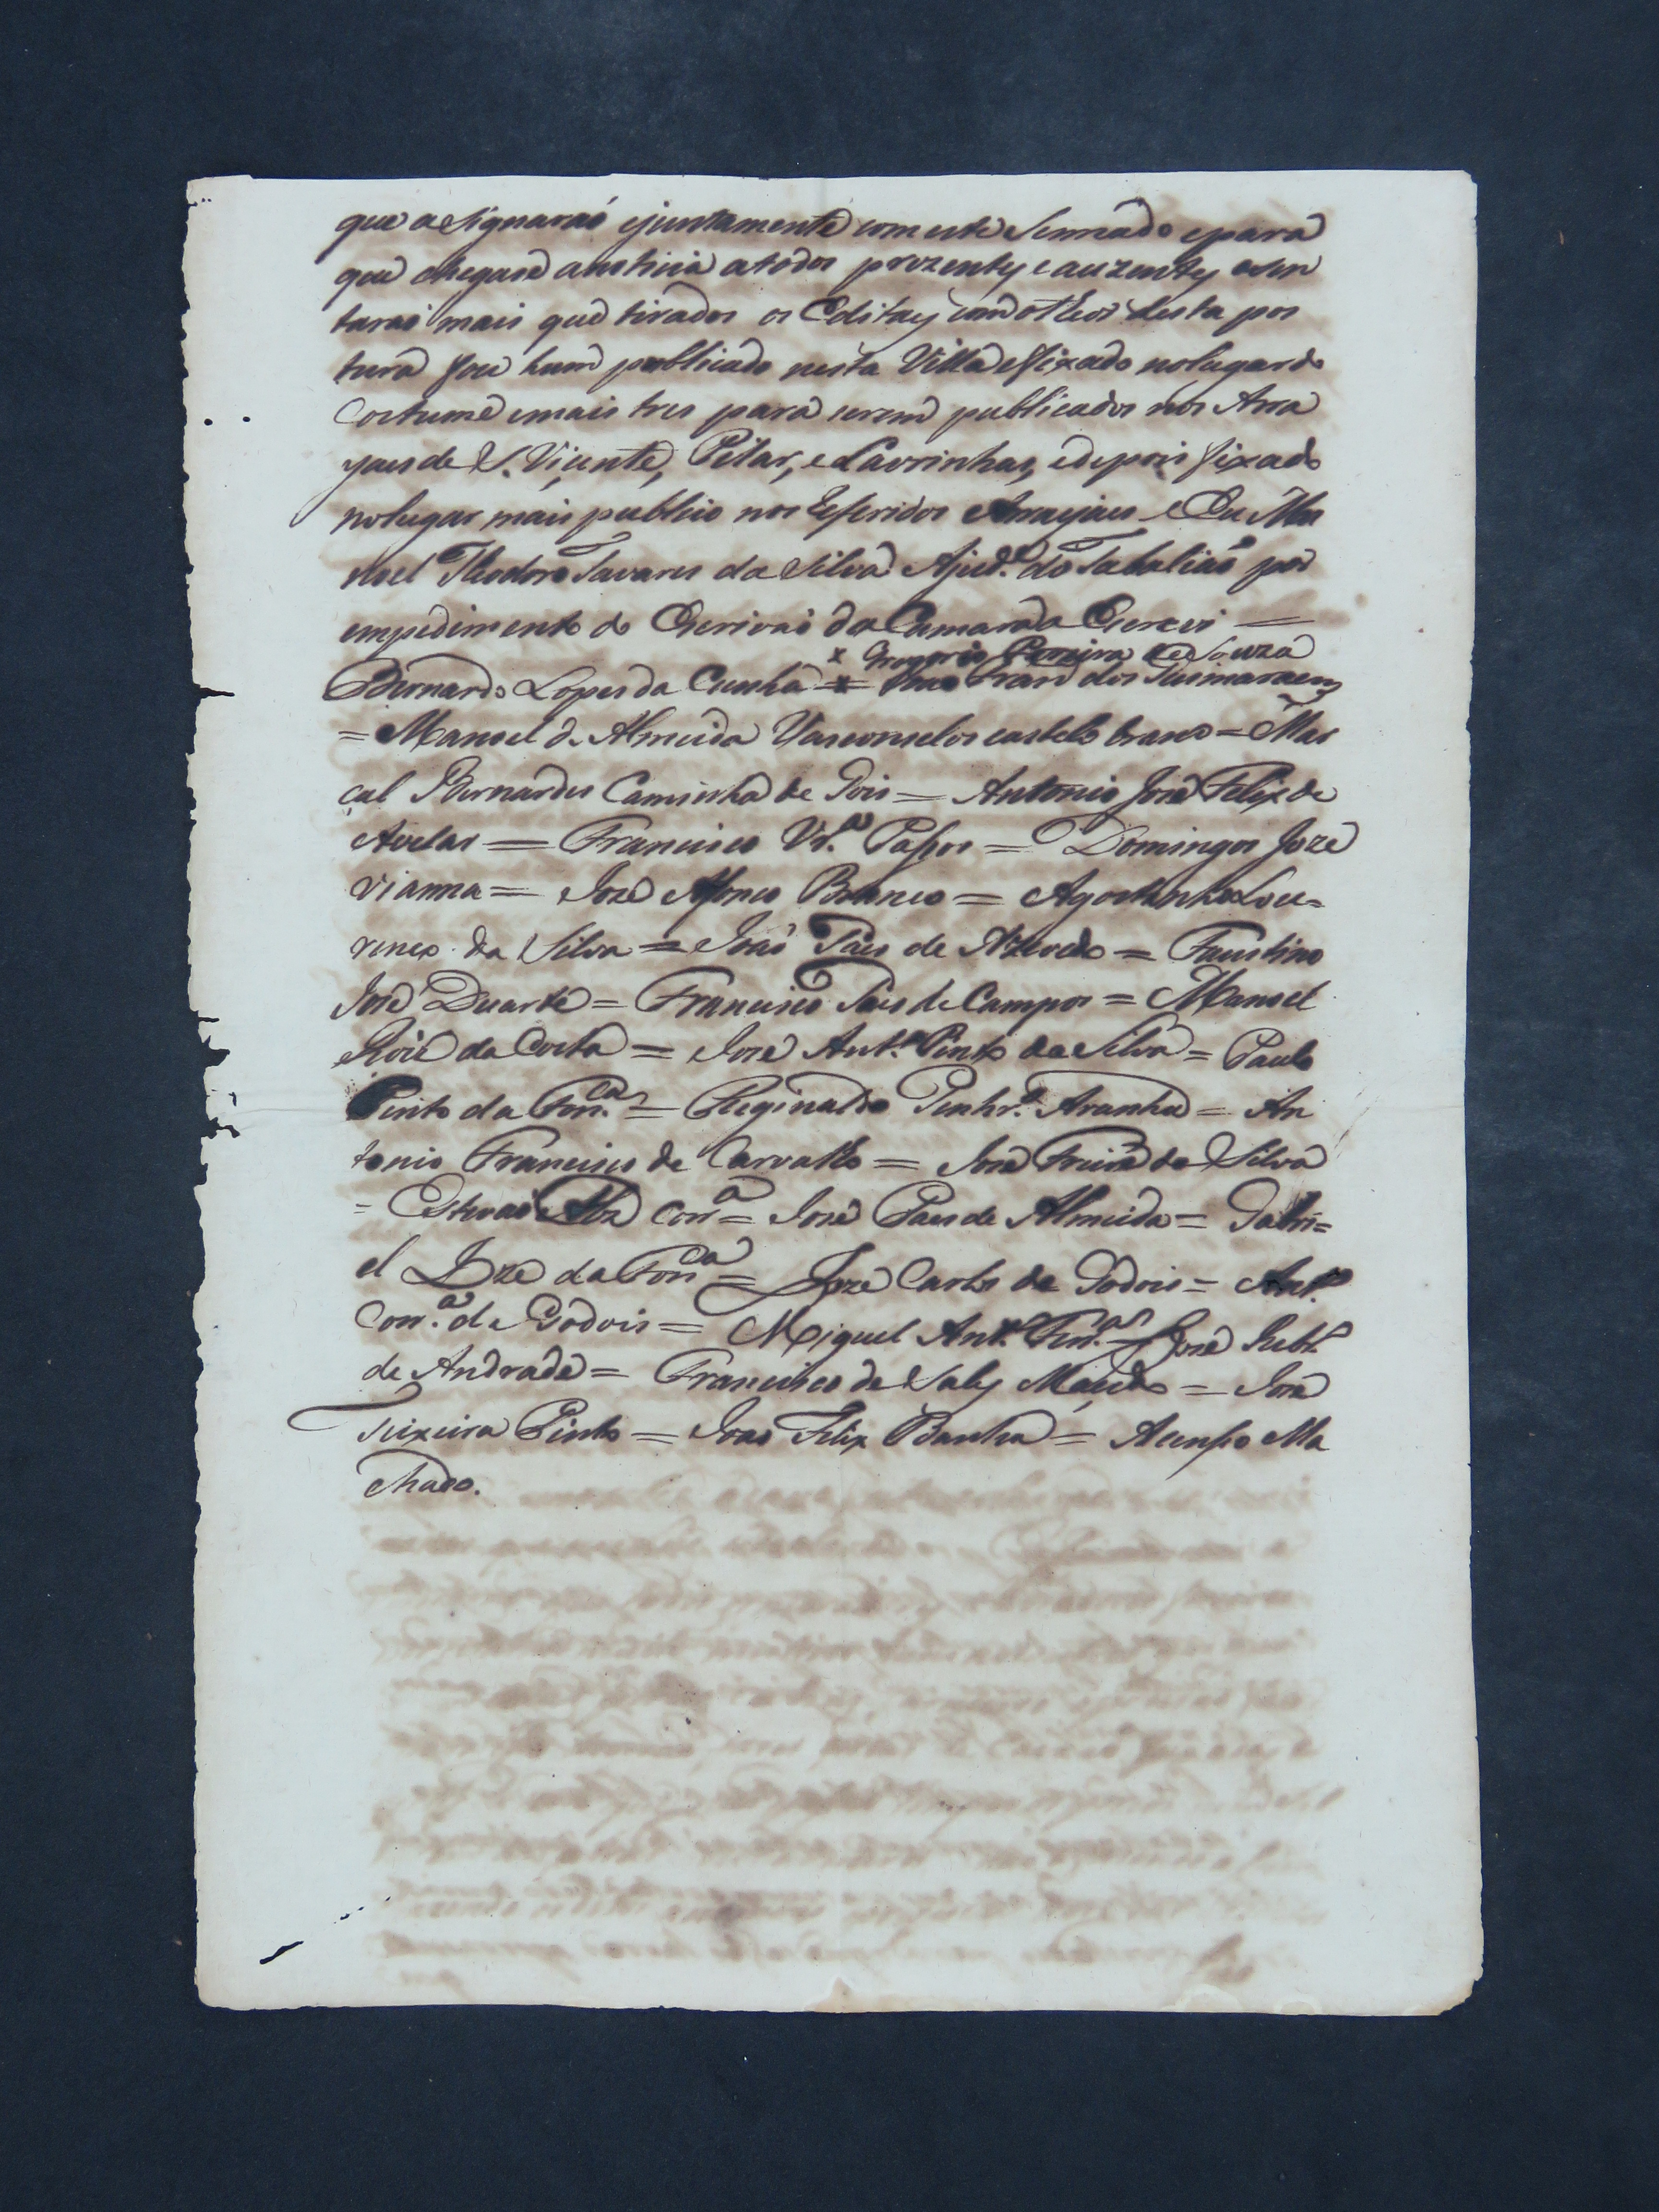 que asignaraó ejuntamente com este Sennado epara
que chegase anoticia atodos prezentes e auzentes asen
taraó mais que tirados os Editaes com otheor desta pos
tura foce hum publicado nesta Villa efixado nolugar do
Costume emais tres para serem publicados nos Arra
yaes de S. Viçente, Pilar, e Lavrinhas, edepois fixado
nolugar mais publico nos Referidos Arrayaes e Eu Ma
noel Theodoro Tavares da Silva Ajud.e do Tabaliaó por
empedimento do Escrivaó da Camara da Escrevi =
x Gregorio Pereira de Souza
Bernardo Lopes da Cunha x = Fran dos Guimaraens
= Manoel de Almeida Vasconselos castelo branco = Mar
çal Bernardes Caminha de Gois = Antonio José Felix de
Avelar = Francisco Vr.a Passos = Domingos Joze
Vianna = José Afonco Branco = Agostinho Lou-
renço da Silva = Joaó Pais de Azevedo = Faustino
José Duarte = Francisco Pais de Campos = Manoel
Roiz da Costa = José Ant.o Pinto da Silva = Paulo
Pinto da Fon.ca = Reginaldo Penhr.o Aranha = An
tonio Francisco de Carvalho = José Freire da Silva
= Estevaó Alz Corr.a = José Paes de Almeida = Gabri=
el Joze da Fon.ca = Joze Carlos de Godois = Ant.o
Corr.a de Godois = Miguel Ant.o = José
de Andrade = Francisco de Sales Maçedo = José
Teixeira Pinto = Joao Felix Banha = Acenso Ma
chado.